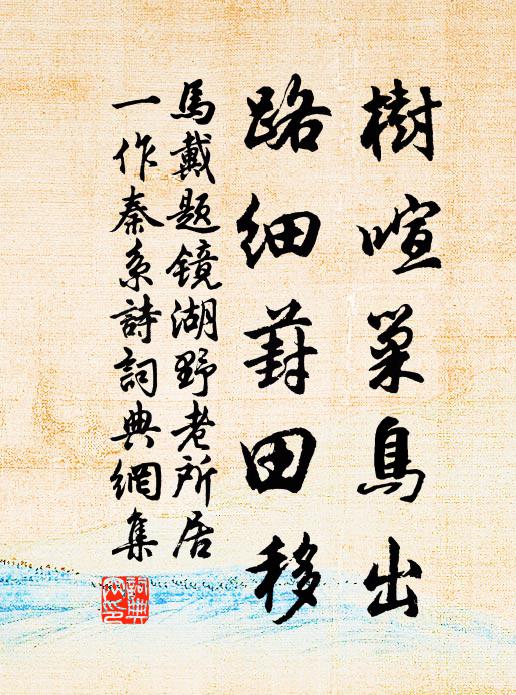 樹喧巢鳥出
路細葑田移
馬戴題鏡湖野老所居
一作秦系詩詞典網集